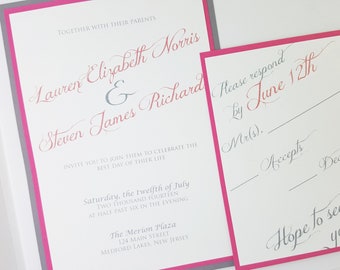 TOGETHER WITH THEIR PARENTS
Lauren Elizabeth Norris
&
Steven James Richard
INVITE YOU TO JOIN THEM TO CELEBRATE THE
BEST DAY OF THIER LIFE
Saturday, the twelfth of July
TWO THOUSAND FOURTEEN
AT HALF PAST SIX IN THE EVENING
The Merion Plaza
124 MAIN STREET
MEDFORD LAKES, NEW JERSEY
Please respond
by June 12th
M(rs),
Accepts
Dec
Hope to se
yo